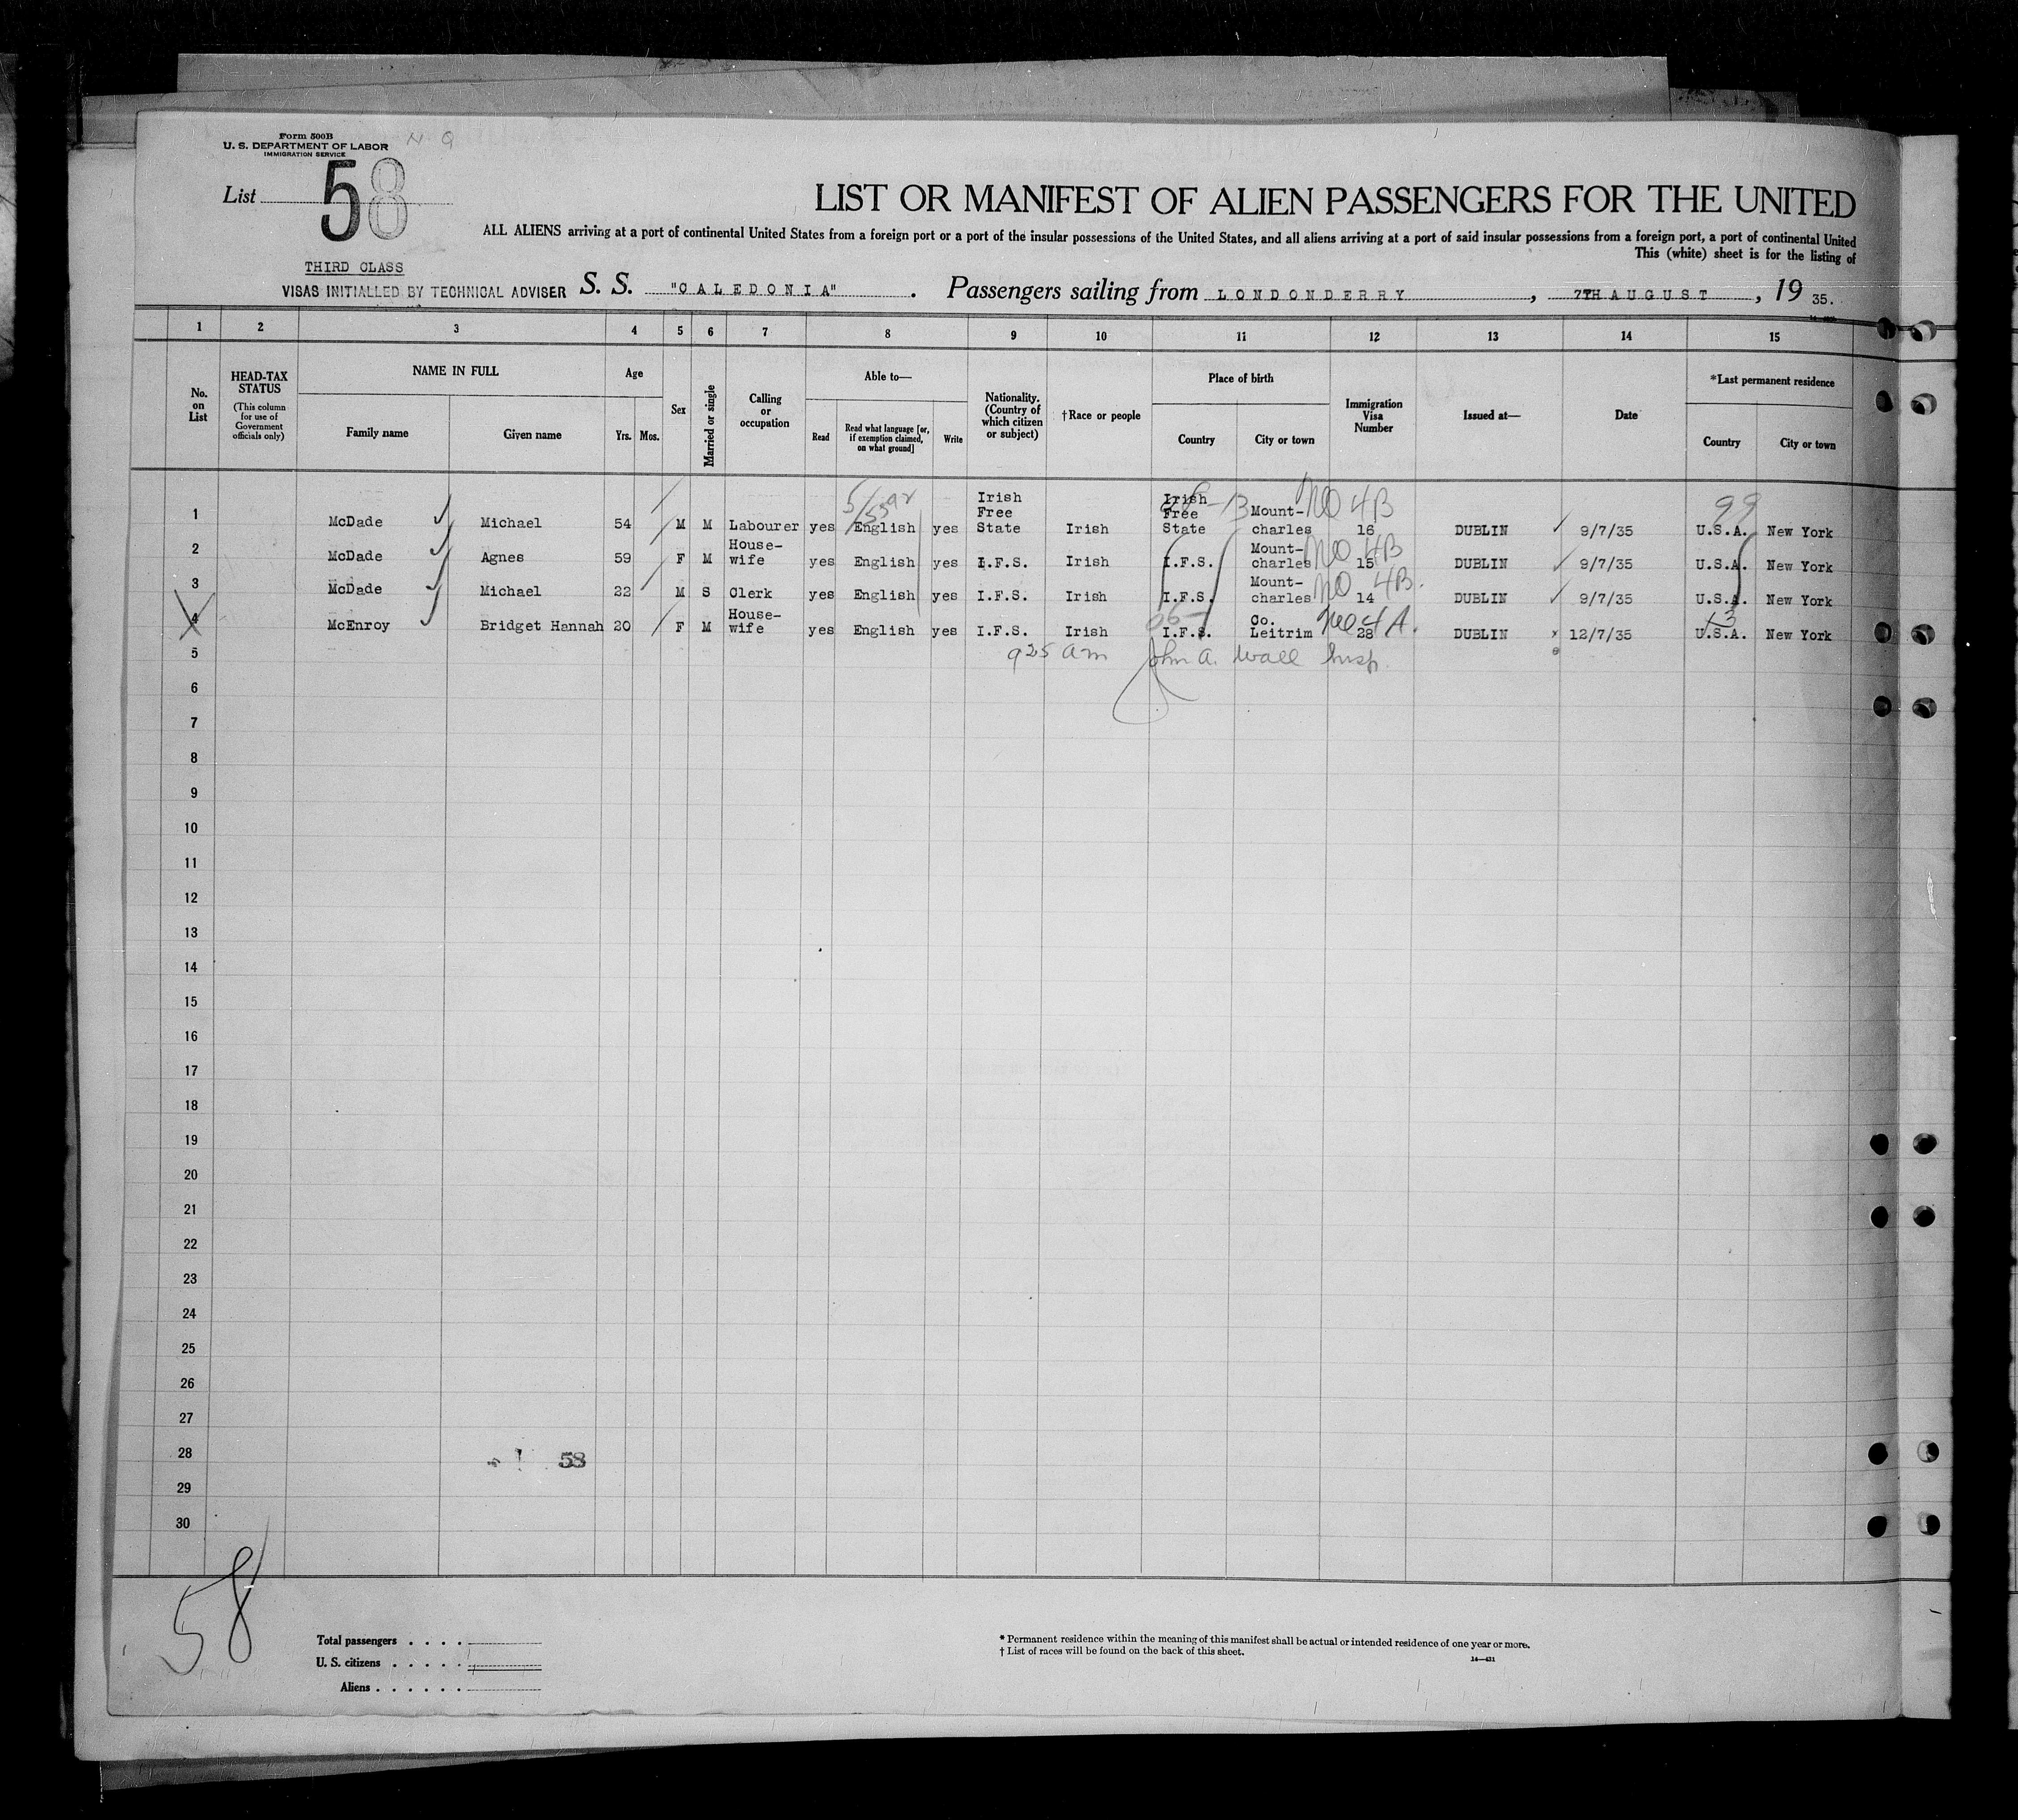 Form 500B
U. S. DEPARTMENT OF LABOR
IMMIGRATION SERVICE
List 58
LIST OR MANIFEST OF ALIEN PASSENGERS FOR THE UNITED
ALL ALIENS arriving at a port of continental United States from a foreign port or a port of the insular possessions of the United States, and all aliens arriving at a port of said insular possessions from a foreign port, a port of continental United
This (white) sheet is for the listing of
THIRD CLASS
VISAS INITIALLED BY TECHNICAL ADVISER S. S. "CALEDONIA". Passengers sailing from LONDONDERRY, 7TH AUGUST, 19 35.
1 2 3 4 5 6 7 8 9 10 11 12 13 14 15
No. on List
HEAD-TAX STATUS
(This column for use of Government officials only)
NAME IN FULL
Family name Given name
Age
Yrs. Mos.
Sex
Married or single
Calling or occupation
Able to—
Read
Read what language [or, if exemption claimed, on what ground]
Write
Nationality. (Country of which citizen or subject)
†Race or people
Place of birth
Country City or town
Immigration Visa Number
Issued at—
Date
*Last permanent residence
Country City or town
1 McDade Michael 54 M M Labourer yes English yes Irish Free State Irish Irish Free State Mount-charles NO 4B 16 DUBLIN 9/7/35 99 U.S.A. New York
2 McDade Agnes 59 F M House-wife yes English yes I.F.S. Irish I.F.S. Mount-charles NO 4B 15 DUBLIN 9/7/35 U.S.A. New York
3 McDade Michael 22 M S Clerk yes English yes I.F.S. Irish I.F.S. Mount-charles NO 4B. 14 DUBLIN 9/7/35 U.S.A. New York
4 McEnroy Bridget Hannah 20 F M House-wife yes English yes I.F.S. Irish I.F.S. Co. Leitrim 4A. 28 DUBLIN 12/7/35 U.S.A. New York
5 925 am John A. Wall Insp.
6
7
8
9
10
11
12
13
14
15
16
17
18
19
20
21
22
23
24
25
26
27
28 58
29
30
58
Total passengers . . . .
U. S. citizens . . . . .
Aliens . . . . . .
* Permanent residence within the meaning of this manifest shall be actual or intended residence of one year or more.
† List of races will be found on the back of this sheet.
14—431